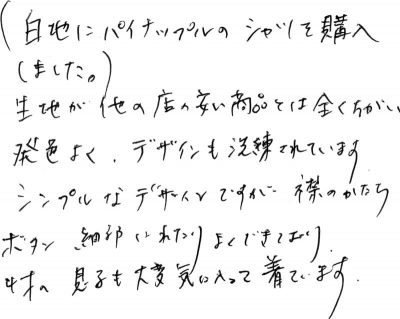 (白地にパイナップルのシャツを購入
しました。)
生地が他の店の安い商品とは全くちがい
発色よく、デザインも洗練されています
シンプルなデザインですが 襟のかたち
ボタン 細部にわたりよくできており、
4才の 息子も大変気に入って着ています.